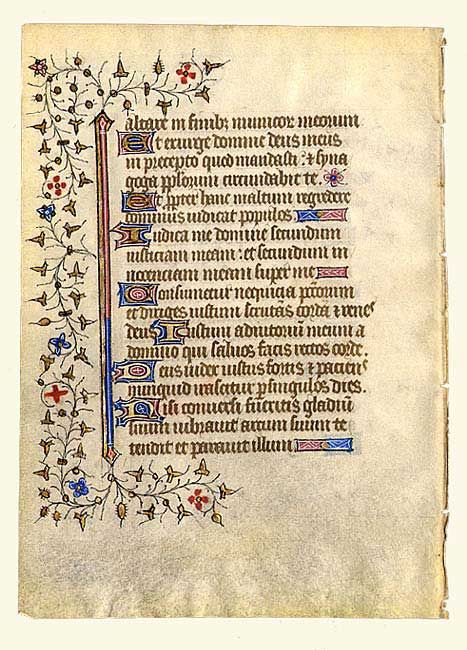 altare in finibȝ inimicor meorum
Et exurge domine deus meus
in precepto quod mandasti : & syna
goga pplorum circundabit te.
Et ppter hanc in altum regredere
dominus iudicat populos.
Iudica me domine secundum
iusticiam meam : et secundum in
nocenciam meam super me
Consumetur nequicia pctorum
et diriges iustum scrutans corda & renes
deus Iustum adiutorium meum a
domino qui saluos facit rectos corde.
Deus iudex iustus fortis & paciens
nunquid irascetur p singulos dies.
Nisi conuersi fueritis gladiū
suum uibrauit arcum suum te
tendit et parauit illum